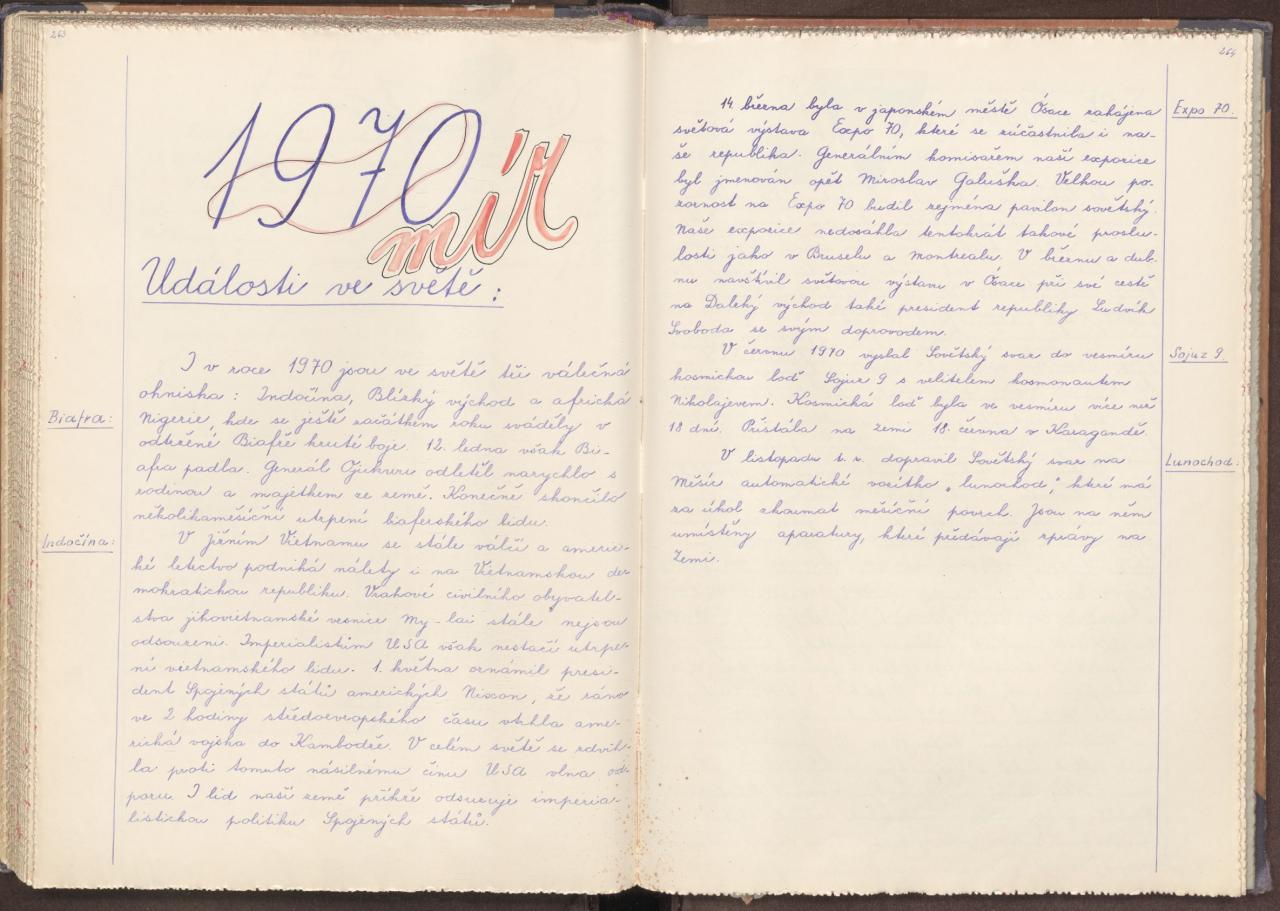 263
1970
mír
Události ve světě:
I v roce 1970 jsou ve světě tři válečná
ohniska: Indočína, Blízký východ a africká
Biafra:
Nigerie, kde se ještě začátkem roku sváděly v
odtržené Biafře kruté boje. 12. ledna však Bi-
afra padla. Generál Ojukwu odletěl narychlo s
rodinou a majetkem ze země. Konečně skončilo
několikaměsíční utrpení biaferského lidu.
Indočína:
V jižním Vietnamu se stále válčí a americ-
ké letectvo podniká nálety i na Vietnamskou de-
mokratickou republiku. Vrahové civilního obyvatel-
stva jihovietnamské vesnice My-lai stále nejsou
odsouzeni. Imperialistům USA však nestačí utrpe-
ní vietnamského lidu. 1. května oznámil presi-
dent Spojených států amerických Nixon, že ráno
ve 2 hodiny středoevropského času vtrhla ame-
rická vojska do Kambodže. V celém světě se zdvih-
la proti tomuto násilnému činu USA vlna od-
poru. I lid naší země příkře odsuzuje imperia-
listickou politiku Spojených států.
264
14 března byla v japonském městě Ósace zahájena
Expo 70.
světová výstava Expo 70, které se zúčastnila i na-
še republika. Generálním komisařem naší expozice
byl jmenován opět Miroslav Galuška. Velkou po-
zornost na Expo 70 budil zejména pavilon sovětský.
Naše expozice nedosáhla tentokrát takové proslu-
losti jako v Bruselu a Montrealu. V březnu a dub-
nu navštívil světovou výstavu v Ósace při své cestě
na Daleký východ také president republiky Ludvík
Svoboda se svým doprovodem.
V červnu 1970 vyslal Sovětský svaz do vesmíru
Sojuz 9
kosmickou loď Sojuz 9 s velitelem kosmonautem
Nikolajevem. Kosmická loď byla ve vesmíru více než
18 dní. Přistála na zemi 18. června v Karagandě.
V listopadu t. r. dopravil Sovětský svaz na
Lunochod:
Měsíc automatické vozítko „lunochod", které má
za úkol zkoumat měsíční povrch. Jsou na něm
umístěny aparatury, které předávají zprávy na
Zemi.